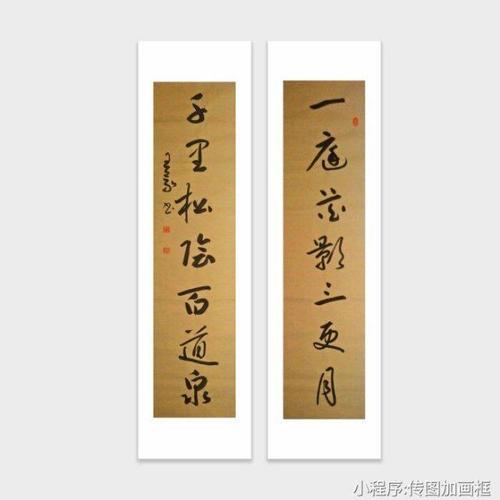 一庭花影三更月
千里松陰百道泉
小程序:传图加画框